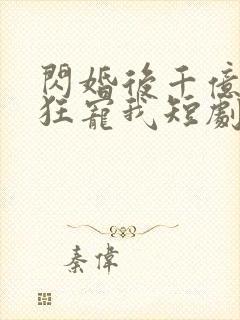 閃婚後千億
狂寵我短劇
秦偉